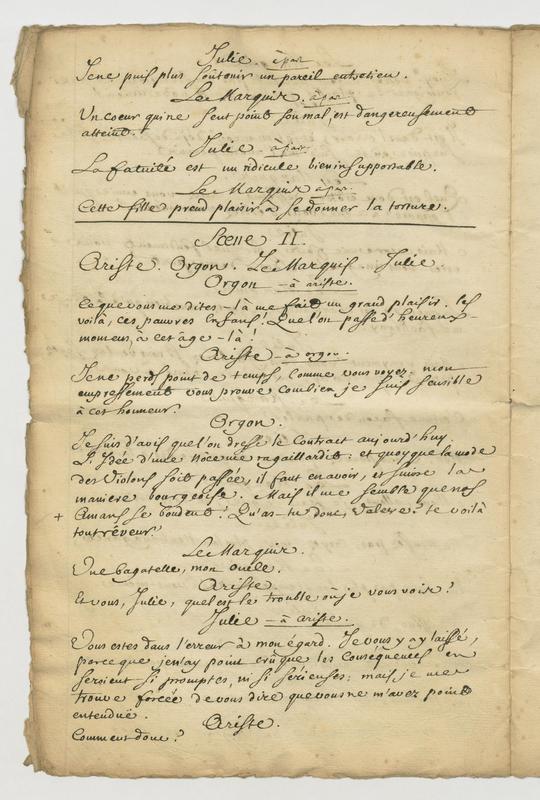 Julie. àpar
Jene puis plus soûtenir un pareil entretien.
Le Marquis. àpar
Un coeur qui ne sent point son mal, est dangereusement
atteint.
Julie àpar.
La fatuité est un ridicule bien insuportable.
Le Marquis àpar.
Cette fille prend plaisir à se donner la torture.
Scene II.
Ariste. Orgon. Le Marquis. Julie
Orgon - à ariste.
Ce que vous me dites-là me fait un grand plaisir. les
voilà, ces pauvres Enfans! Quel'on passe d'heureux
momens à cet âge-là!
Ariste - à orgon.
Jene perds point de temps, comme vous voyez. mon
empressement vous prouve combien je suis sensible
à cet honneur.
Orgon.
Je suis d'avis quel'on dresse le Contract aujourd'huy
L'Idée d'une Nôce me ragaillardit: et quoyque la mode
des Violons soit passée, il faut en avoir, et suivre la
maniere bourgeoise. Mais il me semble que nos
+ Amans se boudent? Qu'as-tu donc, Valere? te voilà
tout rêveur.
Le Marquis.
Une bagatelle, mon oncle.
Ariste
Et vous, Julie, quel est le trouble où je vous vois?
Julie - à ariste.
Vous estes dans l'erreur à mon égard. Je vous y ay laissé,
parce que jen'ay point crû que les Conséquences en
seroient si promptes, ni si sérieuses: mais je me
trouve forcée de vous dire que vous ne m'avez point
entenduë.
Ariste.
Comment donc?